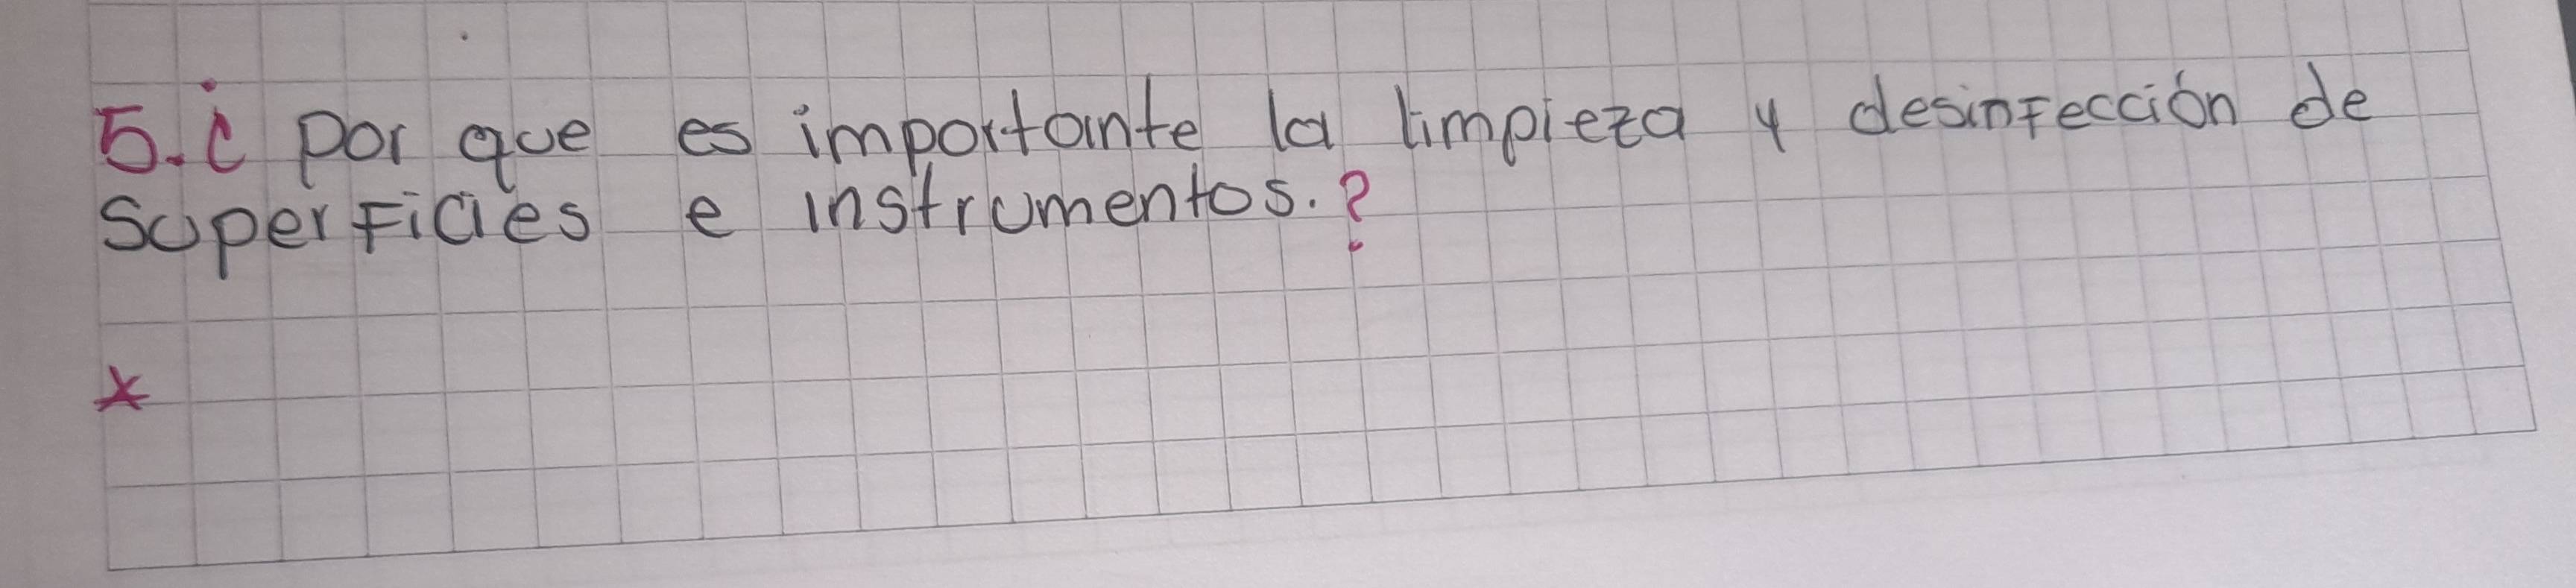 5. ¿ Por que es importante la limpieza y desinfección de
superficies e instrumentos. ?
*